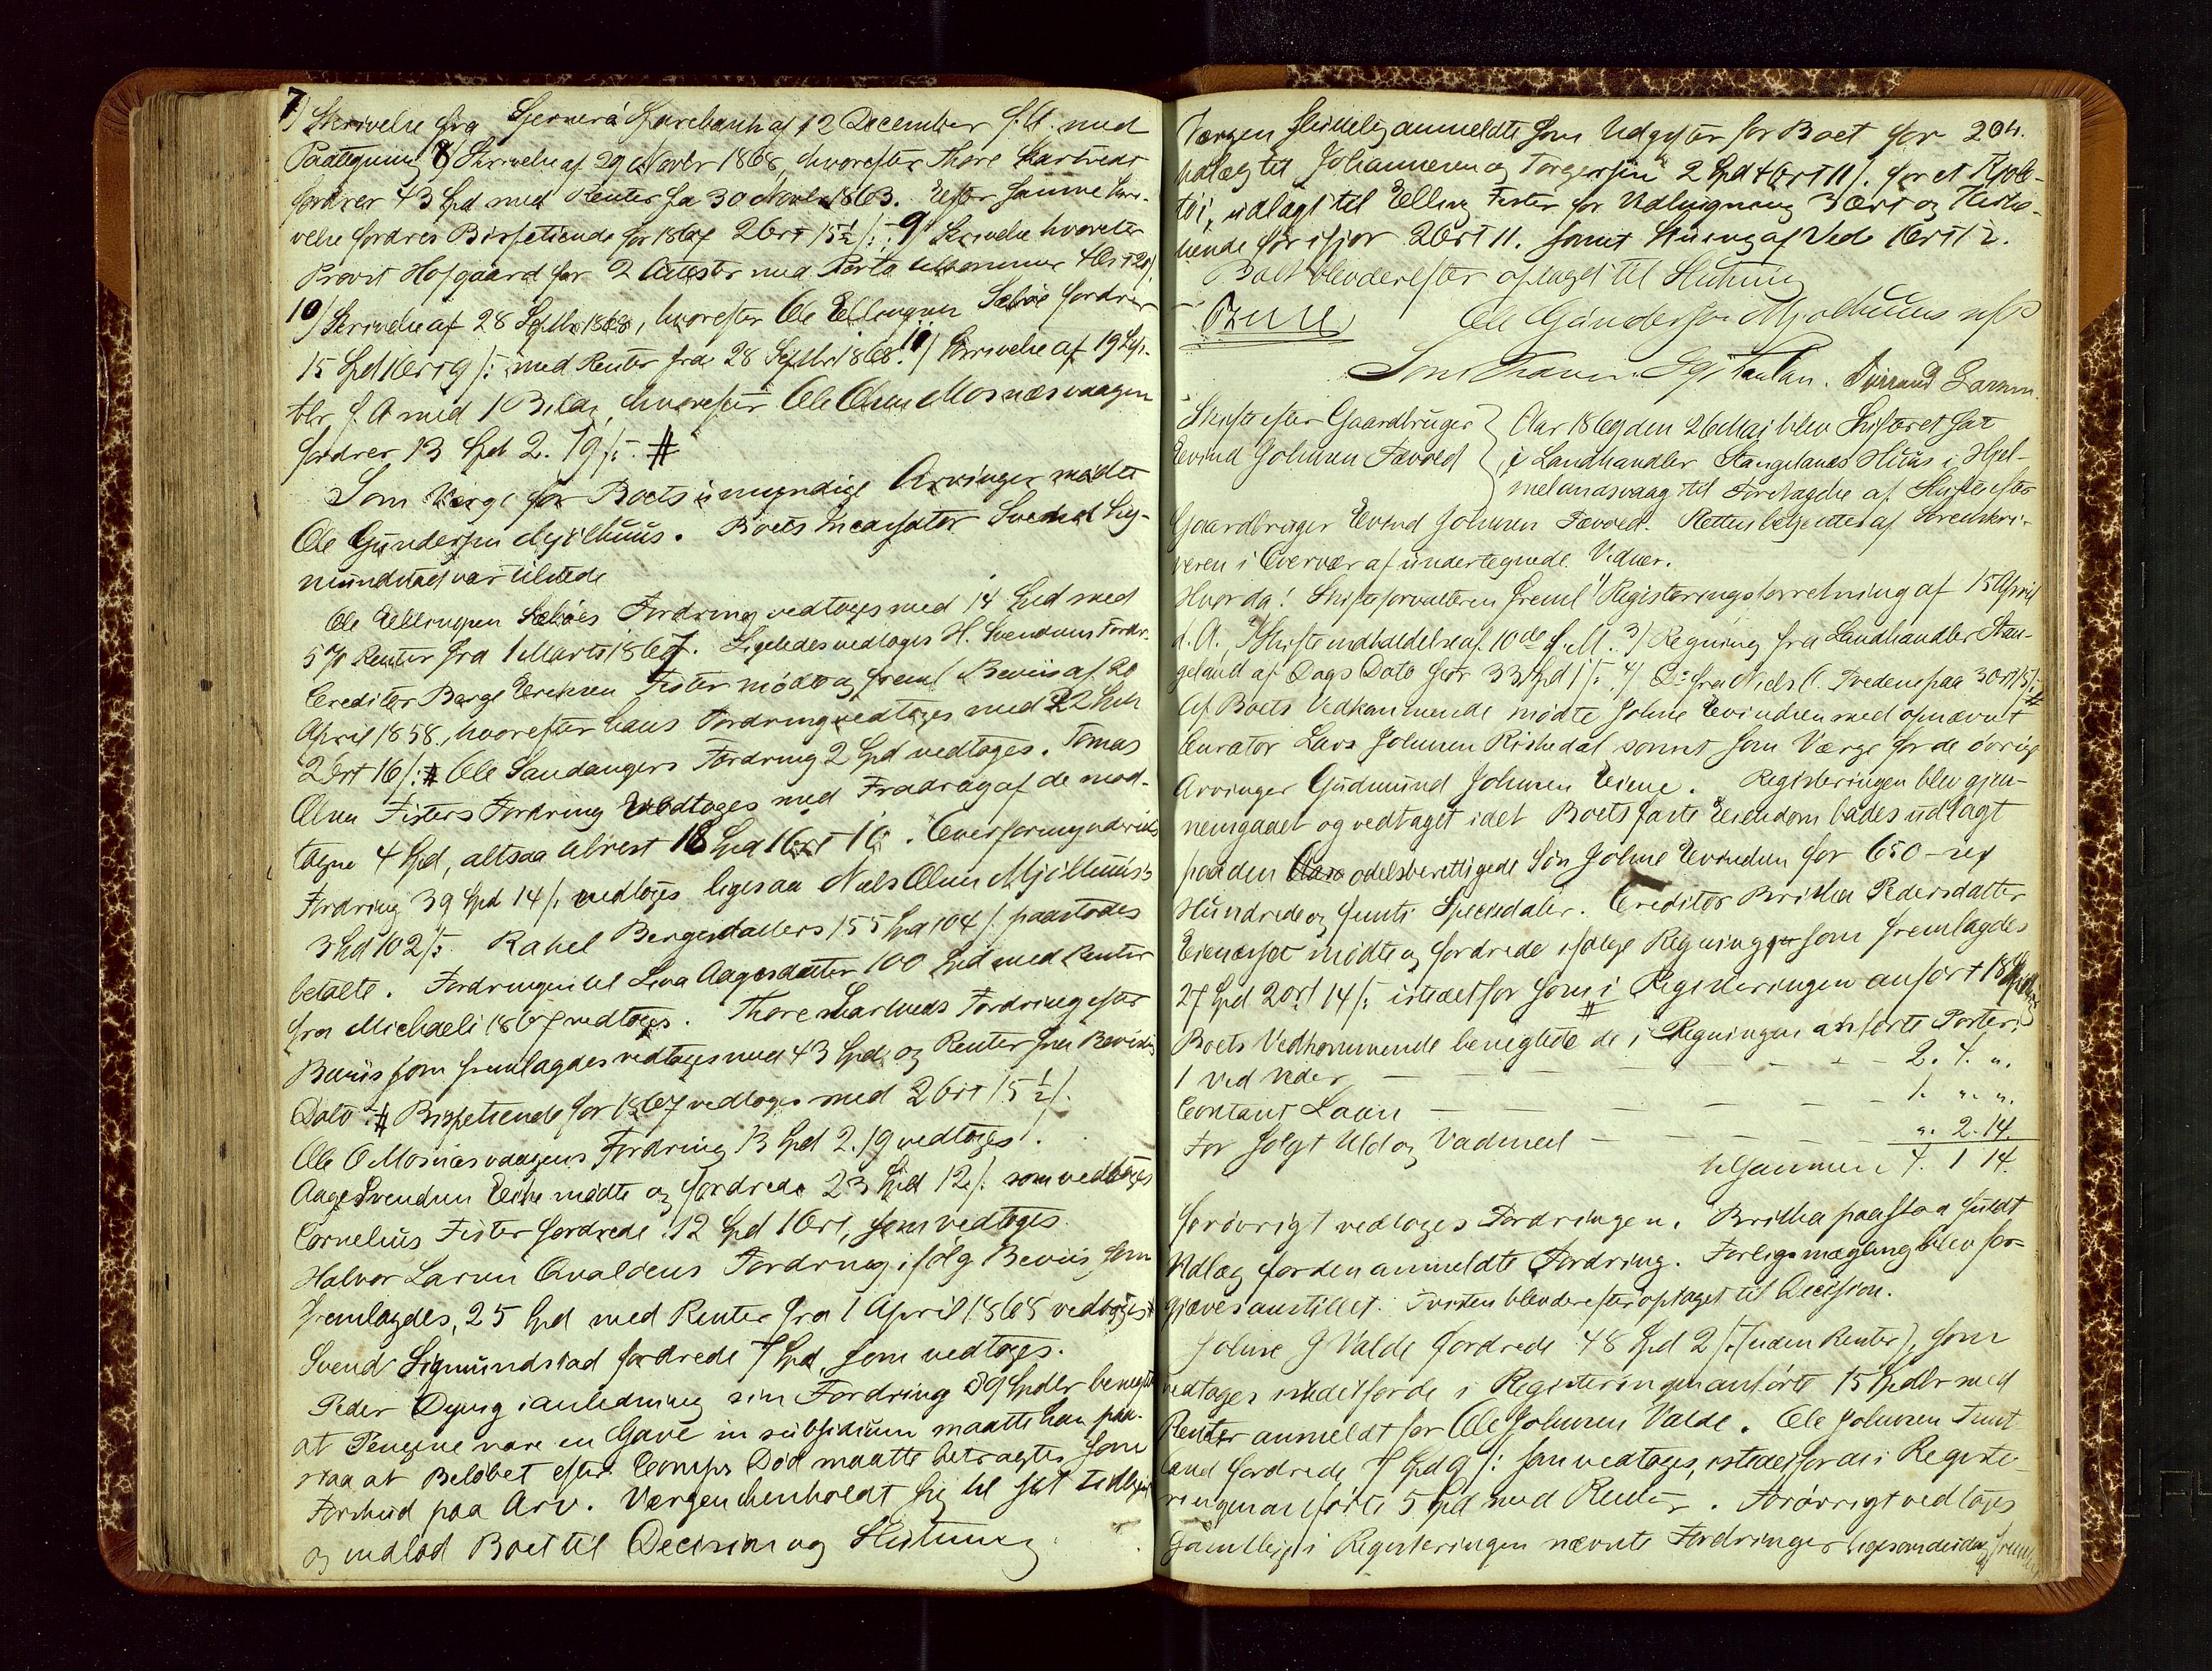 7) Skrivelse fra Sjernerø Sparebank af 12 December f.A. med
Paategning 8) Skrivelse af 29 Novbr 1868, hvorefter Thore Hartveds
fordrer 43 Spd med Renter fra 30 Novbr 1863. Efter samme Skri-
velse fordres Bispetiende for 1867 2 Ort 15½ /: 9) Skrivelse hvorefter
Provst Hofgaard for 2 Attester med Porto tilkommer 4 Ort 20/.
10) Skrivelse af 28 Septbr 1868, hvorefter Ole Ellingsen Sæbøe fordrer
15 Spd 1 Ort 9 /: med Renter fra 28 Septbr 1868. 11) Skrivelse af 19 Sep-
tbr f. A med 1 Bilag, hvorefter Ole Olsen Mosnæsvaagen
fordrer 13 Spd 2. 19 /: #
Som Værge for Boets umyndige Arvinger mødte
Ole Gundersen Mjølhuus. Boets Incassator Svend Sig-
mundstad var tilstede
Ole Ellingsen Sæbøes Fordring vedtoges med 14 Spd med
5 % Renter fra 1 Marts 1867. Ligeledes vedtoges H. Svendsens Fordr.
Creditor Børge Eriksen Fister mødte og freml Beviis af 20
April 1858, hvorefter hans Fordring vedtoges med 22 Spd
2 Ort 16 /: # Ole Sandangers Fordring 2 Spd vedtoges. Tomas
Olsen Fisters Fordring vedtoges med Fradrag af de mod-
tagne 4 Spd, altsaa tilrest 18 Spd 1 Ort 16. Overformynderiets
Fordring 39 Spd 14 /. vedtoges ligesaa Niels Olsen Mjølhuus's
3 Spd 102 /: Rakel Bergesdatters 155 Spd 104 /. paastodes
betalte. Fordringen til Siva Aagesdatter 100 Spd med Renter
fra Michaeli 1867 vedtoges. Thore Hartveds Fordring efter
Beviis som fremlagdes vedtoges med 43 Spd og Renter fra Bevisets
Dato # Bispetiende for 1867 vedtoges med 2 Ort 15½ /.
Ole O Mosnæsvaagens Fordring 13 Spd 2. 19 vedtoges.
Aage Svendsen Eike mødte og fordrede 23 Spd 12 /. som vedtoges
Cornelius Fister fordrede 12 Spd 1 Ort, som vedtoges.
Halvor Larsen Qvaldens Fordring ifølg Beviis, som
fremlagdes, 25 Spd med Renter fra 1 April 1868 vedtoges
Svend Sigmundstad fordrede 7 Spd, som vedtoges.
Peder Dysing i anledning sin Fordring 39 Spdlr benegtet
at Pengene vare en Gave in subsidium maatte han paa-
staa at Beløbet efter Comps Død maatte betragtes som
Forskud paa Arv. Værgen henholdt sig til sit tidligere
og indlod Boet til Decision og Slutning
Værgen skriftelig anmeldte som Udgifter for Boet for 20 h.
udlæg til Johannesen og Torgersen 2 Spd 4 Ort 11 /. for et Kjole-
tøi, udlagt til Elling Fister for Udligning 3 Ort og Kirke-
tiende for ifjor 2 Ort 11. samt Skuing af Ved 1 Ort 12.
Boet blev derefter optaget til Slutning
Ole Gundersen Mjølhuus
Svend Larsen
Skifte efter Gaardbruger Evind Johnsen Tævold
Aar 1869 den 26 Maj blev Skifteret sat
i Landhandler Stangelands Huus i Hjel-
melandsvaag til Foretagelse af Skifte efter
Gaardbruger Evind Johnsen Tævold. Retten betjentes af Sorenskri-
veren i Overvær af undertegnede Vidner.
Hvorda! Skifteforvalteren freml 1) Registeringsforretning af 15 April
d. A. 2) Skifteindkaldelse af 10de d. M. 3) Regning fra Landhandler Stan-
geland af Dags Dato for 33 Spd 1 /: 4) Do fra Niels C. Tvedene paa 3 Ort 15 /: #
Af Boets Vedkommende mødte Johne Evindsen med opnævnt
Curator Lars Johnsen Riskedal samt som Værge for de øvrige
Arvinger Gudmund Johnsen Eiene. Registeringen blev gjen-
nemgaaet og vedtaget idet Boets faste Eiendom bades udlagt
paa den odelsberettigede Søn Johne Evindsen for 650 – sex
Hundrede og femti Speciedaler. Creditor Britha Pedersdatter
Eienæset mødte og fordrede ifølge Regning som fremlagdes
27 Spd 2 Ort 14 /: istedetfor som i Registeringen anført 18 Spd
Boets Vedkommende benegtede de i Regningen anførte Poster:
1 Ved Væder — — — — 2. 4. „.
Contant Laan — — — — 1. „. „.
For solgt Uld og Vadmel — — — „. 2. 14.
tilsammen 4. 1 14.
forøvrigt vedtoges Fordringen. Britha paastod fuldt
Udlæg for den anmeldte Fordring. Forligsmægling blev for-
gjæves anstillet. Tvisten blev derefter optaget til Decision.
Johne J Valde fordrede 48 Spd 2 /: (uden Renter), som
vedtoges istedetfor de i Registeringen anførte 15 Spdlr med
Renter anmeldt for Ole Johnsen Valde. Ole Johnsen Tunt-
land fordrede 7 Spd 9 /: som vedtoges, istedetfor de i Registe-
ringen anførte 5 Spd med Renter. Forøvrigt vedtoges
samtlige i Registeringen nævnte Fordringer ligesom de idag freml